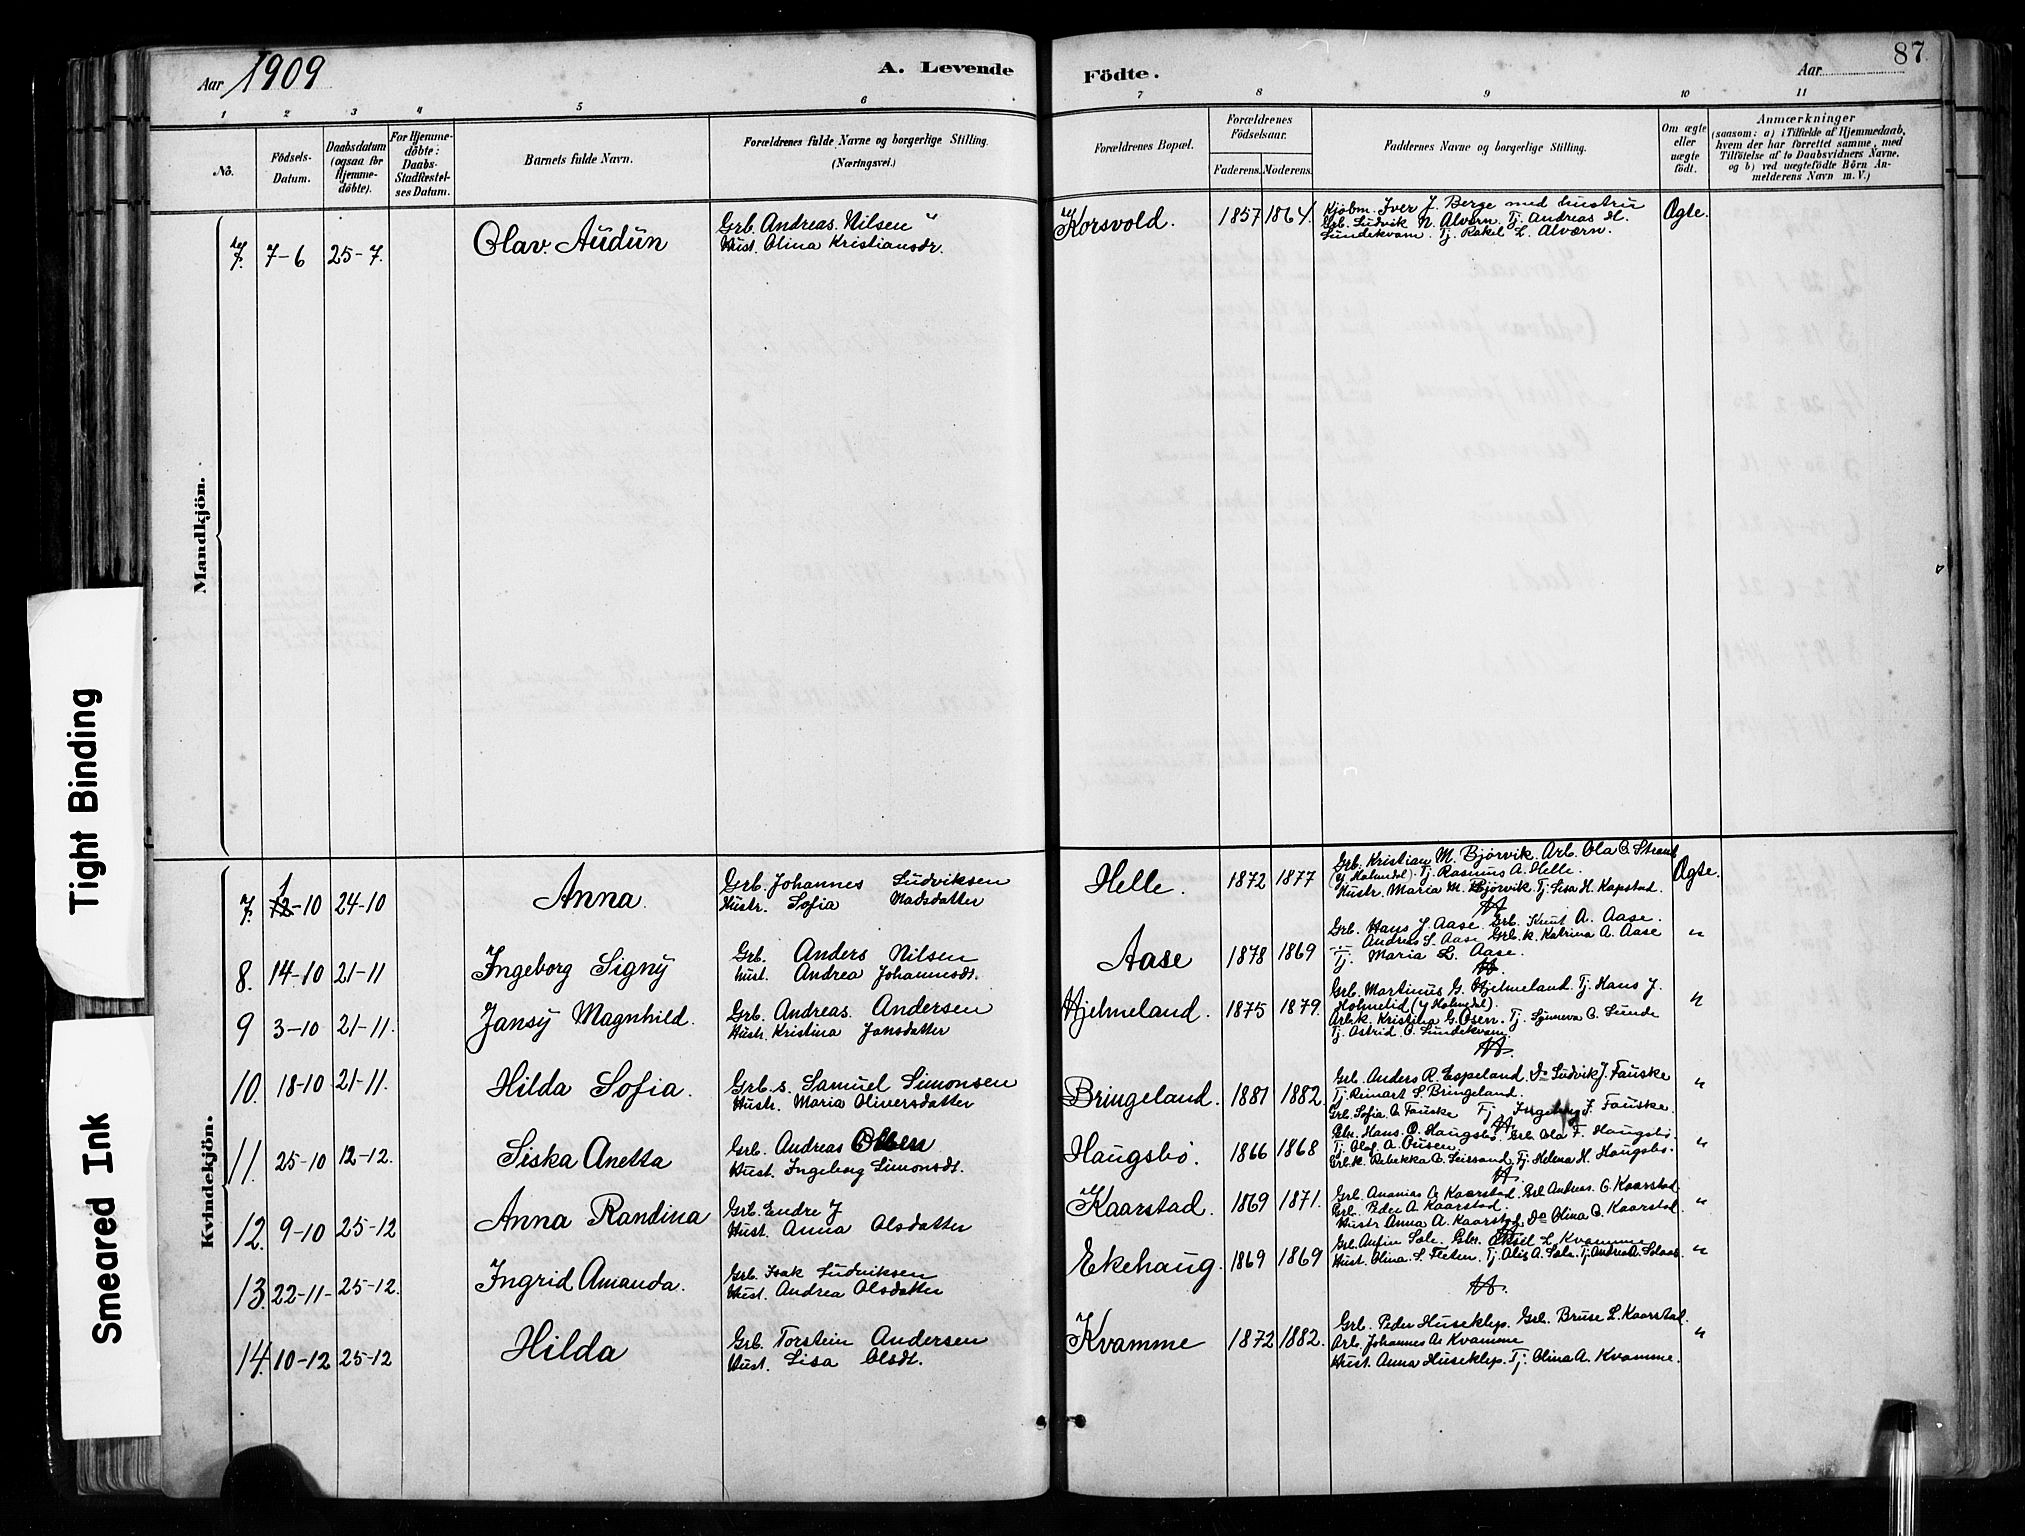 Aar 1909
A. Levende Födte.
Aar
87
1 2 3 4 5 6 7 8 9 10 11
No.
Födsels-Datum.
Daabsdatum (ogsaa for Hjemme-döbte).
For Hjemme-döbte: Daabs-Stadfæstel-ses Datum.
Barnets fulde Navn.
Forældrenes fulde Navne og borgerlige Stilling. (Næringsvei.)
Forældrenes Bopæl.
Forældrenes Födselsaar.
Faderens. Moderens.
Faddernes Navne og borgerlige Stilling.
Om ægte eller uægte födt.
Anmærkninger (saasom: a) i Tilfælde af Hjemmedaab, hvem der har forrettet samme, med Tilföielse af to Daabsvidners Navne, og b) ved uægtefödte Börn An-melderens Navn m. V.)
Mandkjön.
7. 7-6 25-7. Olav Audun
Grb. Andreas Nilsen
Hust. Olina Kristiansdr.
Korsvold. 1857 1864
Kjøbm. Iver J. Berge med hustru
Grb. Ludvik N. Alvern. Tj. Andreas M.
Sundekvam. Tj. Rakil L. Alværn.
Ægte.
Kvindekjön.
7. 1 12-10 24-10 Anna.
Grb. Johannes Ludviksen
Hustr. Sofia Madsdatter
Helle. 1872 1877
Grb. Kristian M. Bjørvik. Arb. Ola O. Strand
(y Holmedal). Tj. Rasmus A. Helle.
Hustr. Maria M. Bjørvik Tj. Lisa H. Kapstad.
Ægte.
8. 14-10 21-11 Ingeborg Signy
Grb. Anders Nilsen
Hust. Andrea Johannesdt.
Aase 1878 1869
Grb. Hans J. Aase. Grb. Knut A. Aase.
Andreas S. Aase Grb.k. Katrina A. Aase
Tj. Maria L. Aase.
"
9 3-10 21-11. Jansy Magnhild.
Grb. Andreas. Andersen
Hustr. Kristina Jonsdatter
Hjelmeland. 1875 1879.
Grb. Martinus G. Hjelmeland. Tj. Hans J.
Holmelid (y Holmedal).
Arb.k. Kristina G. Osen. Tj. Synneva O. Sunde
Tj. Astrid O. Sundekvam
"
10. 18-10 21-11. Hilda Sofia.
Grb.s. Samuel Simonsen
Hustr. Maria Oliversdatter
Bringeland. 1881 1882.
Grb. Anders R. Espeland. Do Ludvik J. Fauske
Tj. Reinart S. Bringeland.
Grb. Sofia O Fauske Tj. Ingeborg J. Fauske.
"
11. 25-10 12-12. Siska Anetta
Grb. Andreas Olsen
Hust. Ingeborg Simonsdt.
Haugsbø. 1866 1868
Gbr. Hans. O. Haugsbø. Grb. Ola F. Haugsbø.
Tj. Olaf A. Ousen
Grb.k. Rebekka O. Leirsand. Tj. Helena H. Haugsbø.
"
12. 9-10 25-12 Anna Randina
Grb. Endre J
Hust. Anna Olsdatter
Kaarstad. 1869 1871.
Grb. Ananias A. Kaarstad. Grb Andreas. O. Kaarstad
Grb. Peder A Kaarstad.
Hustr Anna A. Kaarstad Do Olina O. Kaarstad.
"
13. 22-11- 25-12. Ingrid Amanda.
Grb. Isak Ludviksen
Hust. Andrea Olsdatter
Ekehaug. 1869 1869
Grb. Anfin Sole. Gbr. Aksel L Kvamme
Hust. Olina. S. Fleten. Tj. Alis A. Sole. Tj. Andrea A.
"
14. 10-12 25-12 Hilda
Grb. Torstein Andersen
Hust. Lisa Olsdt.
Kvamme 1872 1882.
Grb. Peder Huseklep. Grb. Bruse L. Kaarstad.
Arb. Johannes A. Kvamme
Hust. Anna Huseklep. Tj. Olina A. Kvamme.
"
Tight Binding
Smeared Ink